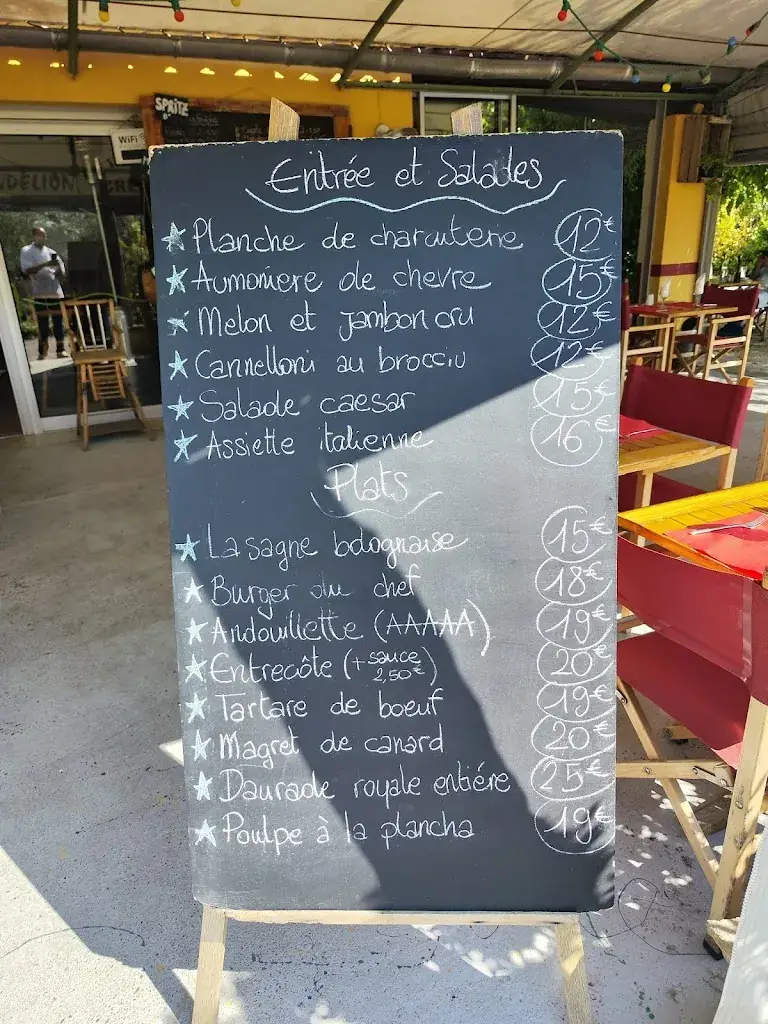 SPRITZ
WiFi
Entrée et Salades
Planche de charcuterie 12€
Aumonière de chevre 15€
Melon et jambon cru 12€
Cannelloni au brocciu 12€
Salade caesar 15€
Assiette italienne 16€
Plats
Lasagne bolognaise 15€
Burger du chef 18€
Andouillette (AAAAA) 19€
Entrecôte (+ sauce 2,50€) 20€
Tartare de boeuf 19€
Magret de canard 20€
Daurade royale entiére 25€
Poulpe à la plancha 19€